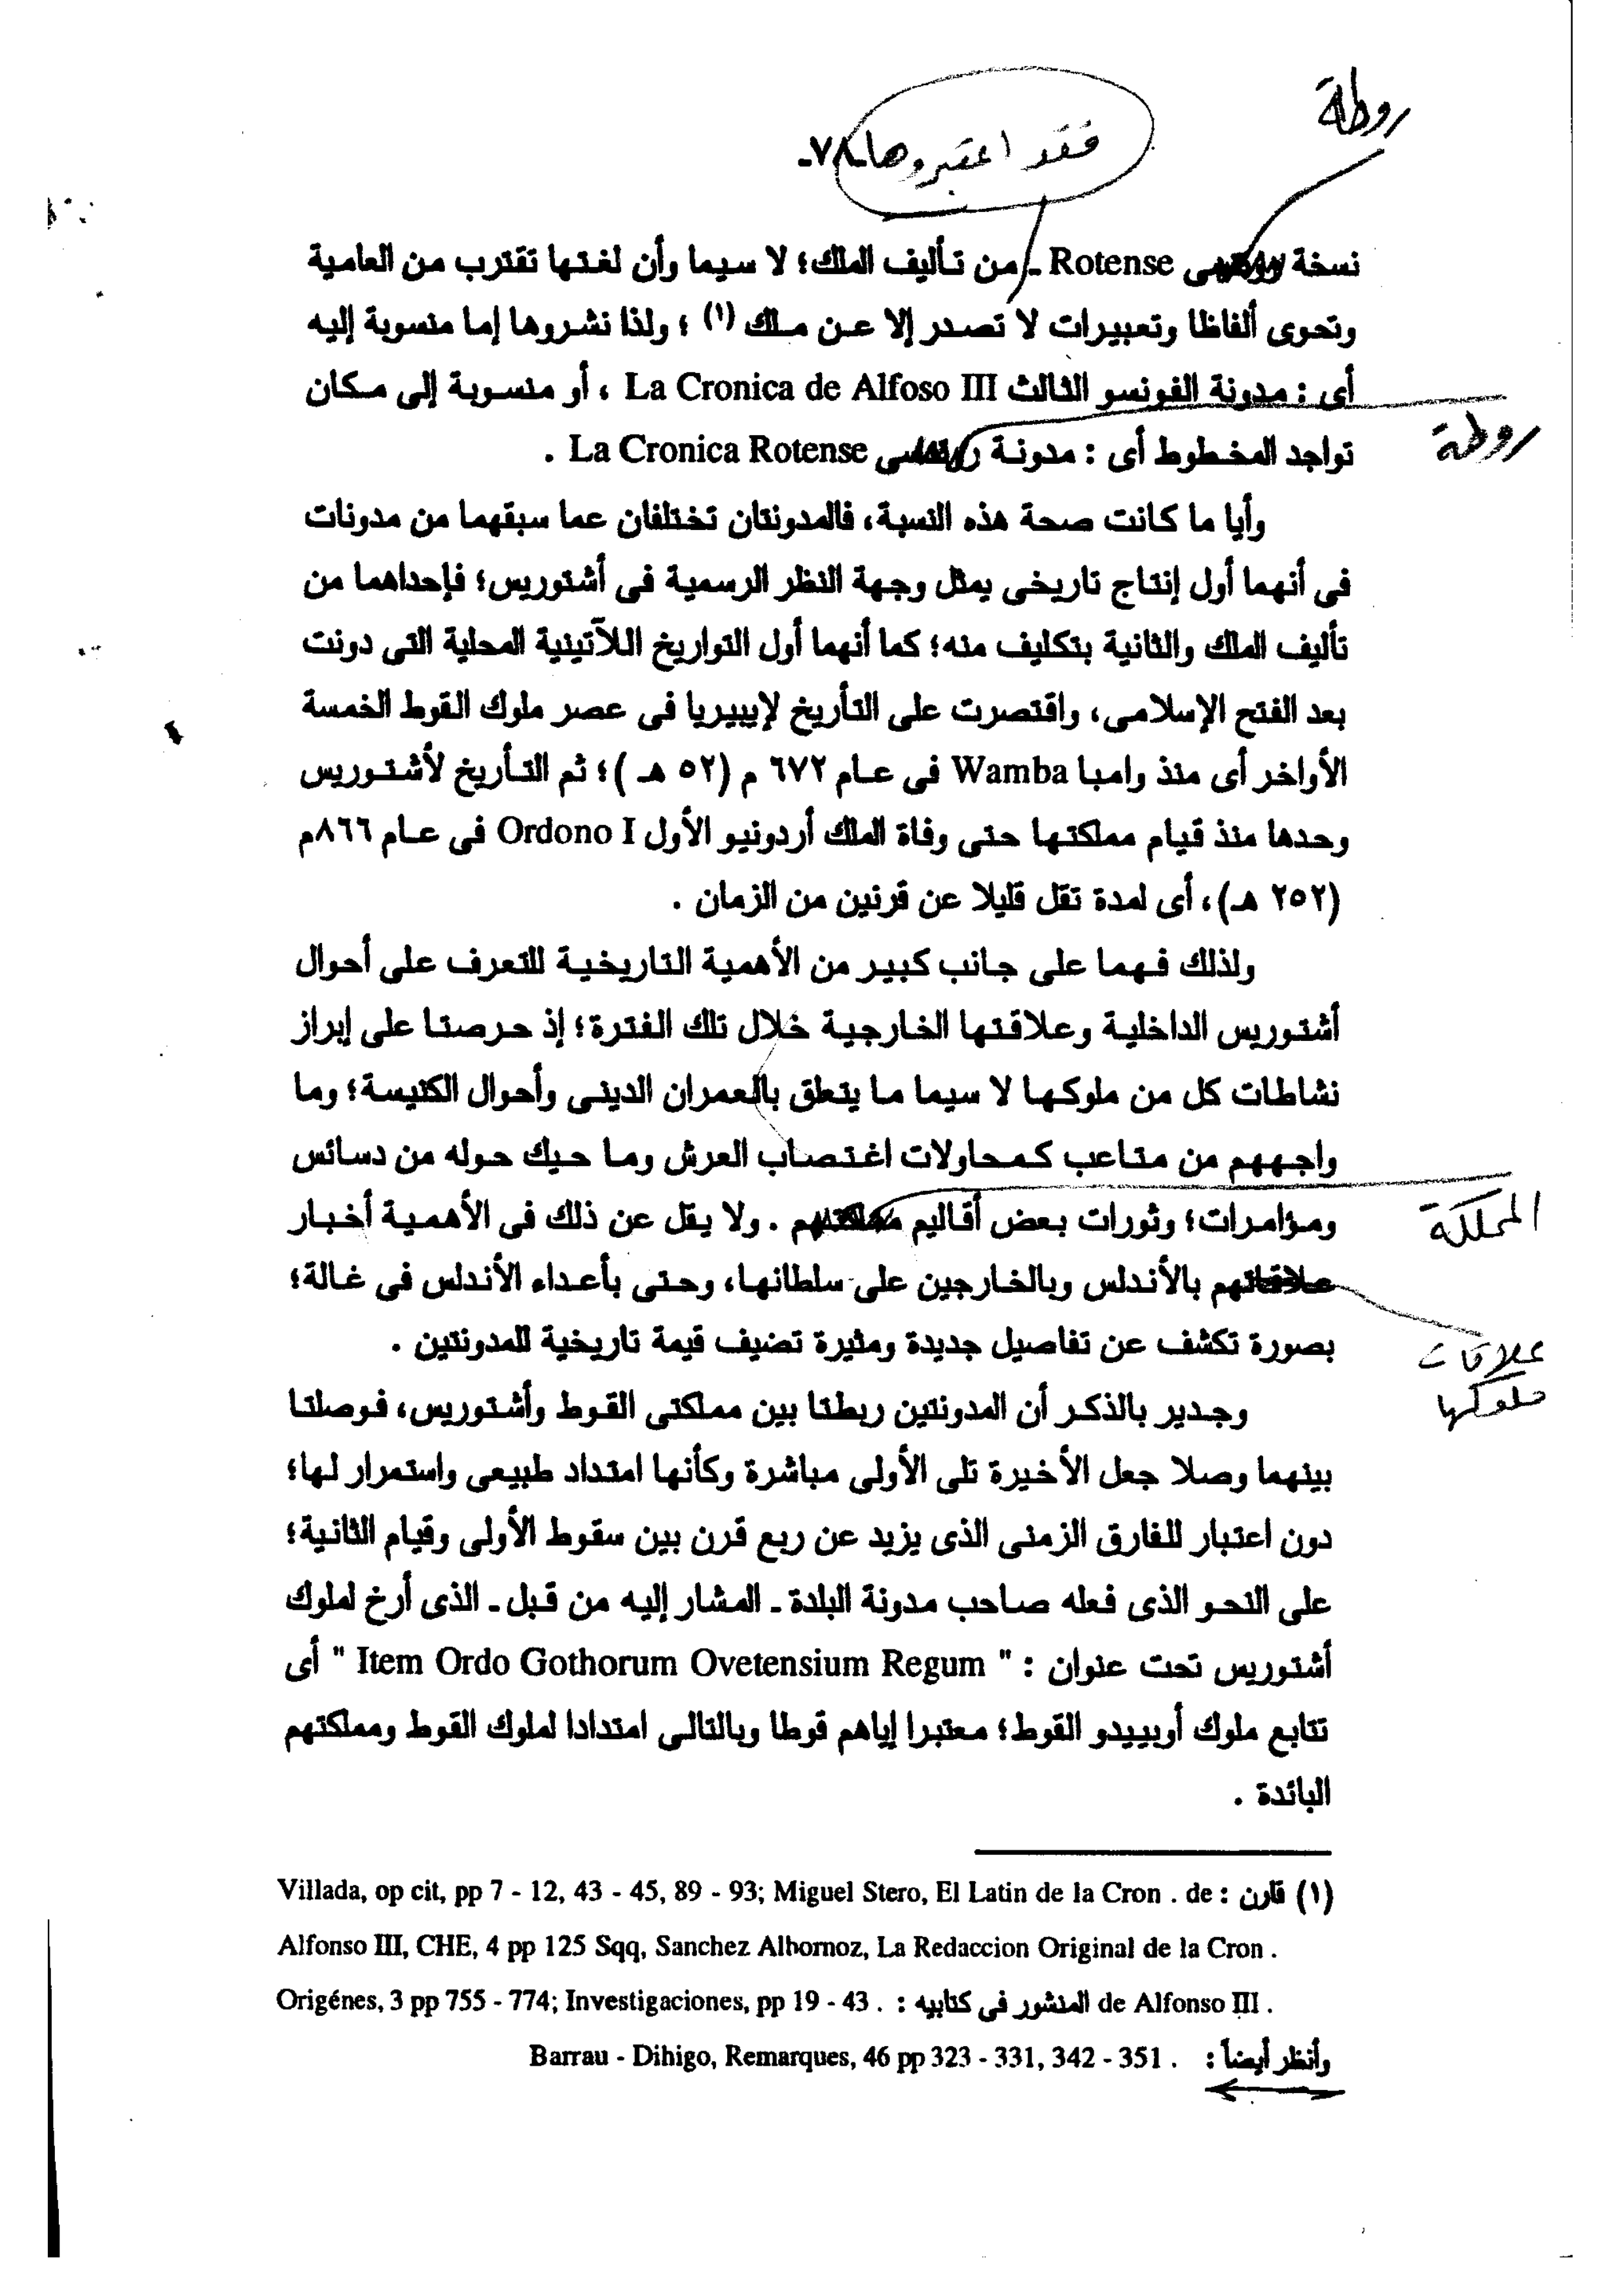 روطة
فقد اعتبروها
-٧٨-
نسخة Rotense - من تأليف الملك؛ لا سيما وأن لغتها تقترب من العامية
وتحوى ألفاظا وتعبيرات لا تصدر إلا عن ملك (١) ؛ ولذا نشروها إما منسوبة إليه
أى : مدونة الفونسو الثالث La Cronica de Alfoso III ، أو منسوبة إلى مكان
تواجد المخطوط أى : مدونة La Cronica Rotense .
روطة
وأيا ما كانت صحة هذه النسبة، فالمدونتان تختلفان عما سبقهما من مدونات
فى أنهما أول إنتاج تاريخى يمثل وجهة النظر الرسمية فى أشتوريس؛ فإحداهما من
تأليف الملك والثانية بتكليف منه؛ كما أنهما أول التواريخ اللآتينية المحلية التى دونت
بعد الفتح الإسلامى، واقتصرت على التأريخ لإيبيريا فى عصر ملوك القوط الخمسة
الأواخر أى منذ وامبا Wamba فى عام ٦٧٢ م (٥٢ هـ )؛ ثم التأريخ لأشتوريس
وحدها منذ قيام مملكتها حتى وفاة الملك أردونيو الأول Ordono I فى عام ٨٦٦م
(٢٥٢ هـ)، أى لمدة تقل قليلا عن قرنين من الزمان .
ولذلك فهما على جانب كبير من الأهمية التاريخية للتعرف على أحوال
أشتوريس الداخلية وعلاقتها الخارجية خلال تلك الفترة؛ إذ حرصتا على إبراز
نشاطات كل من ملوكها لا سيما ما يتعلق بالعمران الدينى وأحوال الكنيسة؛ وما
واجههم من متاعب كمحاولات اغتصاب العرش وما حيك حوله من دسائس
ومؤامرات؛ وثورات بعض أقاليم مملكتهم . ولا يقل عن ذلك فى الأهمية أخبار
المملكة
علاقاتهم بالأندلس وبالخارجين على سلطانها، وحتى بأعداء الأندلس فى غالة؛
علاقات
ملوكها
بصورة تكشف عن تفاصيل جديدة ومثيرة تضيف قيمة تاريخية للمدونتين .
وجدير بالذكر أن المدونتين ربطتا بين مملكتى القوط وأشتوريس، فوصلتا
بينهما وصلا جعل الأخيرة تلى الأولى مباشرة وكأنها امتداد طبيعى واستمرار لها؛
دون اعتبار للفارق الزمنى الذى يزيد عن ربع قرن بين سقوط الأولى وقيام الثانية؛
على النحو الذى فعله صاحب مدونة البلدة - المشار إليه من قبل - الذى أرخ لملوك
أشتوريس تحت عنوان : " Item Ordo Gothorum Ovetensium Regum " أى
تتابع ملوك أوبييدو القوط؛ معتبرا إياهم قوطا وبالتالى امتدادا لملوك القوط ومملكتهم
البائدة .
(١) قارن : Villada, op cit, pp 7 - 12, 43 - 45, 89 - 93; Miguel Stero, El Latin de la Cron . de
Alfonso III, CHE, 4 pp 125 Sqq, Sanchez Albornoz, La Redaccion Original de la Cron .
de Alfonso III . المنشور فى كتابيه : Origénes, 3 pp 755 - 774; Investigaciones, pp 19 - 43 .
وأنظر أيضاً : Barrau - Dihigo, Remarques, 46 pp 323 - 331, 342 - 351 .